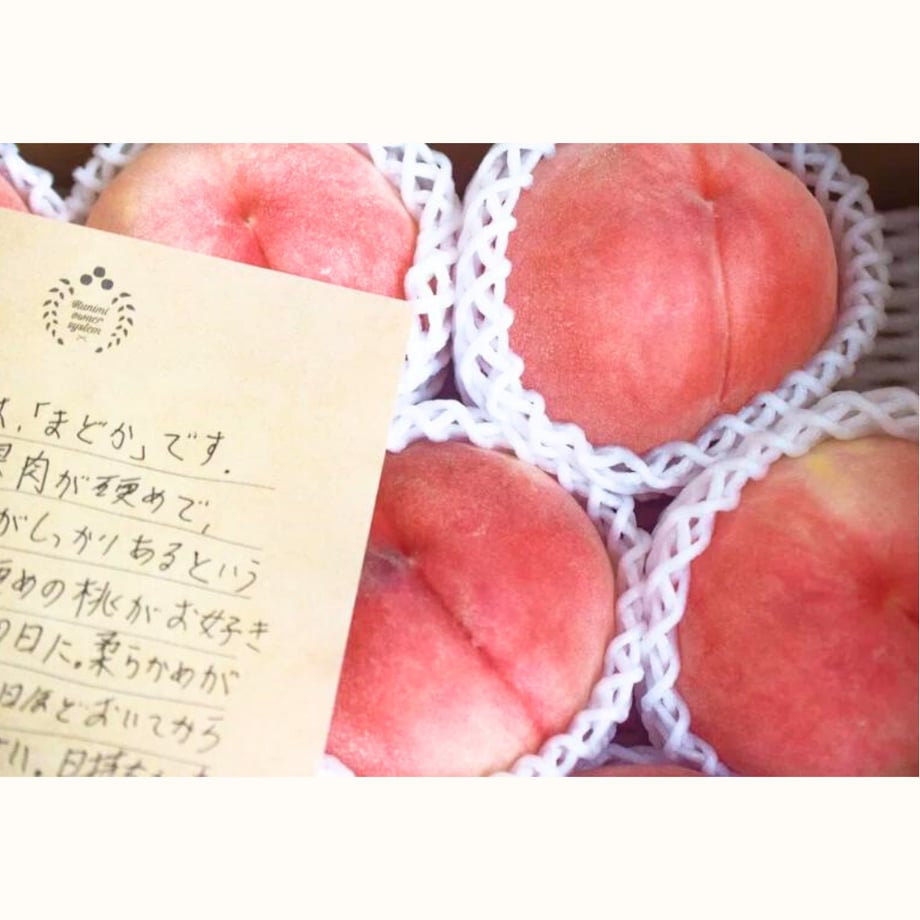 Kunimi
owner
system
は、「まどか」です。
果肉が硬めで、
がしっかりあるという
硬めの桃がお好き
の日に。柔らかめが
日ほどおいてから
さい。日持ち